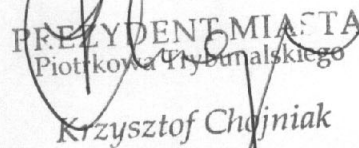 PREZYDENT MIASTA
Piotrkowa Trybunalskiego
Krzysztof Chojniak